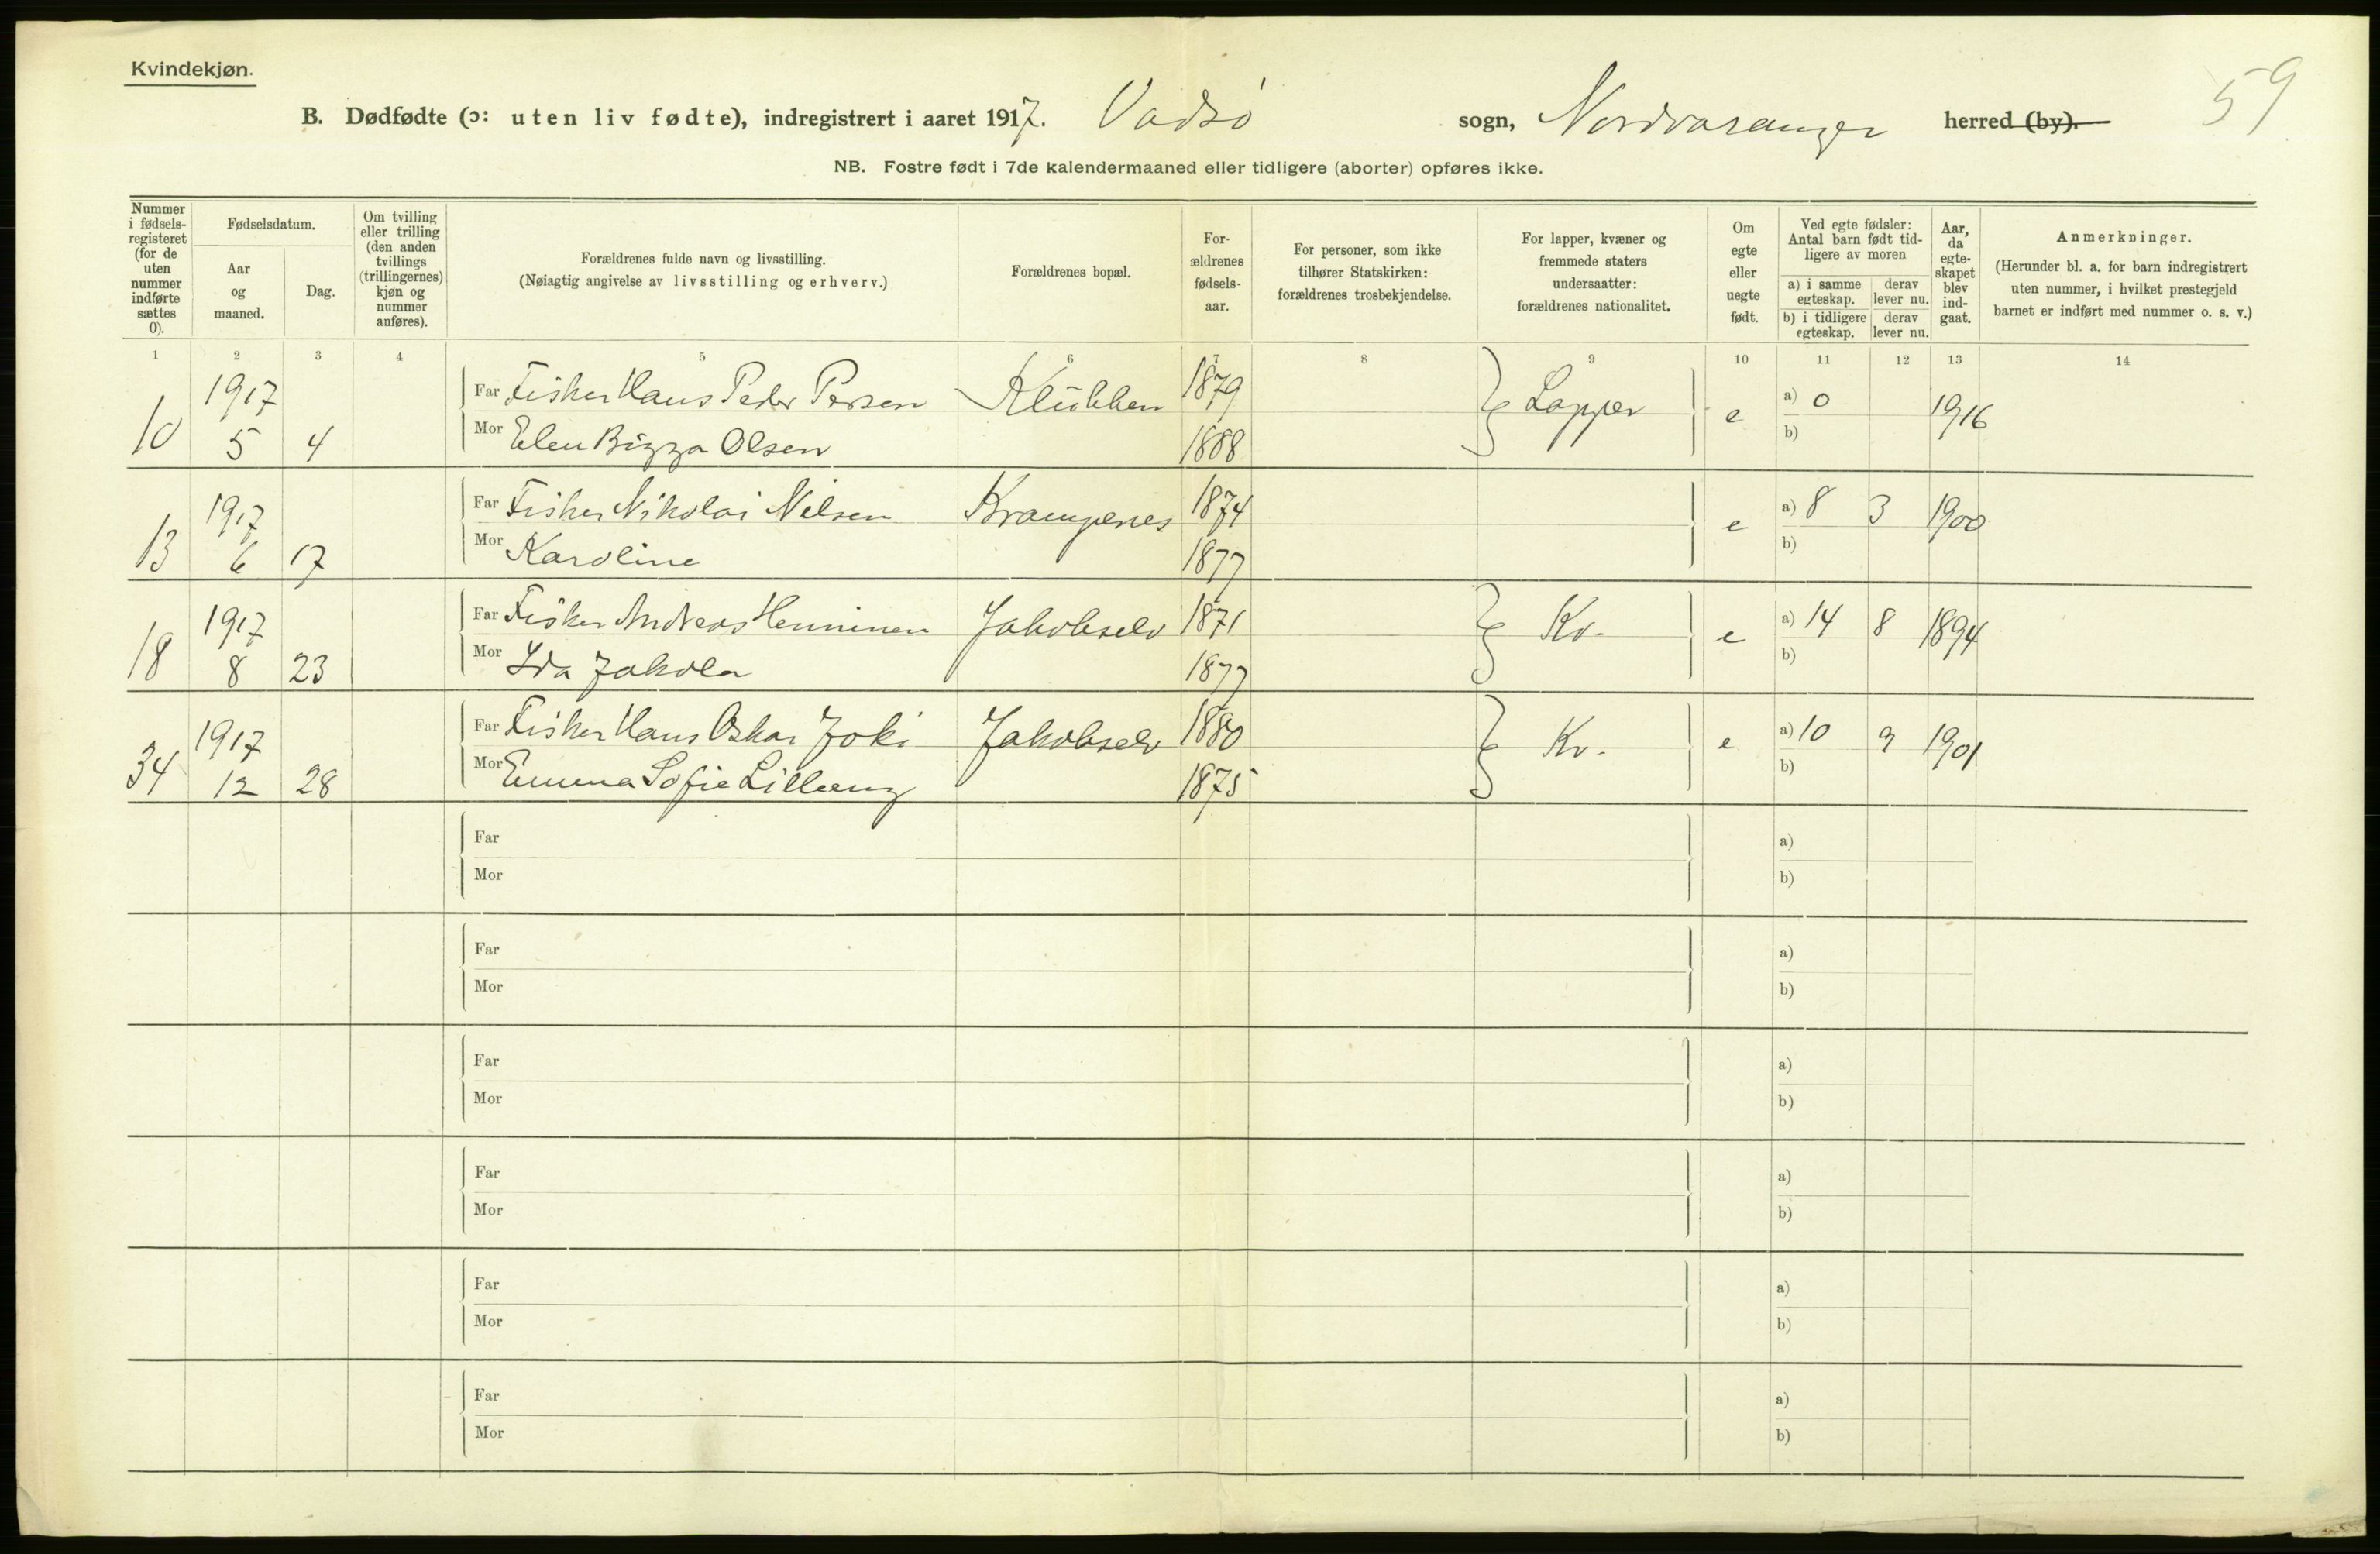 Kvindekjøn.
59
B. Dødfødte (ɔ: uten liv fødte), indregistrert i aaret 1917. Vadsø sogn, Nordvaranger herred (by).
NB. Fostre født i 7de kalendermaaned eller tidligere (aborter) opføres ikke.
Nummer
i fødsels-
registeret
(for de
uten
nummer
indførte
sættes
0).
Fødselsdatum.
Aar
og
maaned.
Dag.
Om tvilling
eller trilling
(den anden
tvillings
(trillingernes)
kjøn og
nummer
anføres).
Forældrenes fulde navn og livsstilling.
(Nøiagtig angivelse av livsstilling og erhverv.)
Forældrenes bopæl.
For-
ældrenes
fødsels-
aar.
For personer, som ikke
tilhører Statskirken:
forældrenes trosbekjendelse.
For lapper, kvæner og
fremmede staters
undersaatter:
forældrenes nationalitet.
Om
egte
eller
uegte
født.
Ved egte fødsler:
Antal barn født tid-
ligere av moren
a) i samme
egteskap.
derav
lever nu.
b) i tidligere
egteskap.
derav
lever nu.
Aar,
da
egte-
skapet
blev
ind-
gaat.
Anmerkninger.
(Herunder bl. a. for barn indregistrert
uten nummer, i hvilket prestegjeld
barnet er indført med nummer o. s. v.)
1 2 3 4 5 6 7 8 9 10 11 12 13 14
1917 Far Fisker Hans Peder Persen Klubben 1879 Lapper e a) 0 1916
10 5 4 Mor Elen Bizza Olsen 1888 b)
1917 Far Fisker Nikolai Nilsen Krampenes 1874 e a) 8 3 1900
13 6 17 Mor Karoline 1877 b)
1917 Far Fisker Andreas Henninen Jakobselv 1871 Kv. e a) 14 8 1894
18 8 23 Mor Ida Jakola 1877 b)
1917 Far Fisker Hans Oskar Joki Jakobselv 1880 Kv. e a) 10 9 1901
34 12 28 Mor Emma Sofie Lilleeng 1875 b)
Far a)
Mor b)
Far a)
Mor b)
Far a)
Mor b)
Far a)
Mor b)
Far a)
Mor b)
Far a)
Mor b)